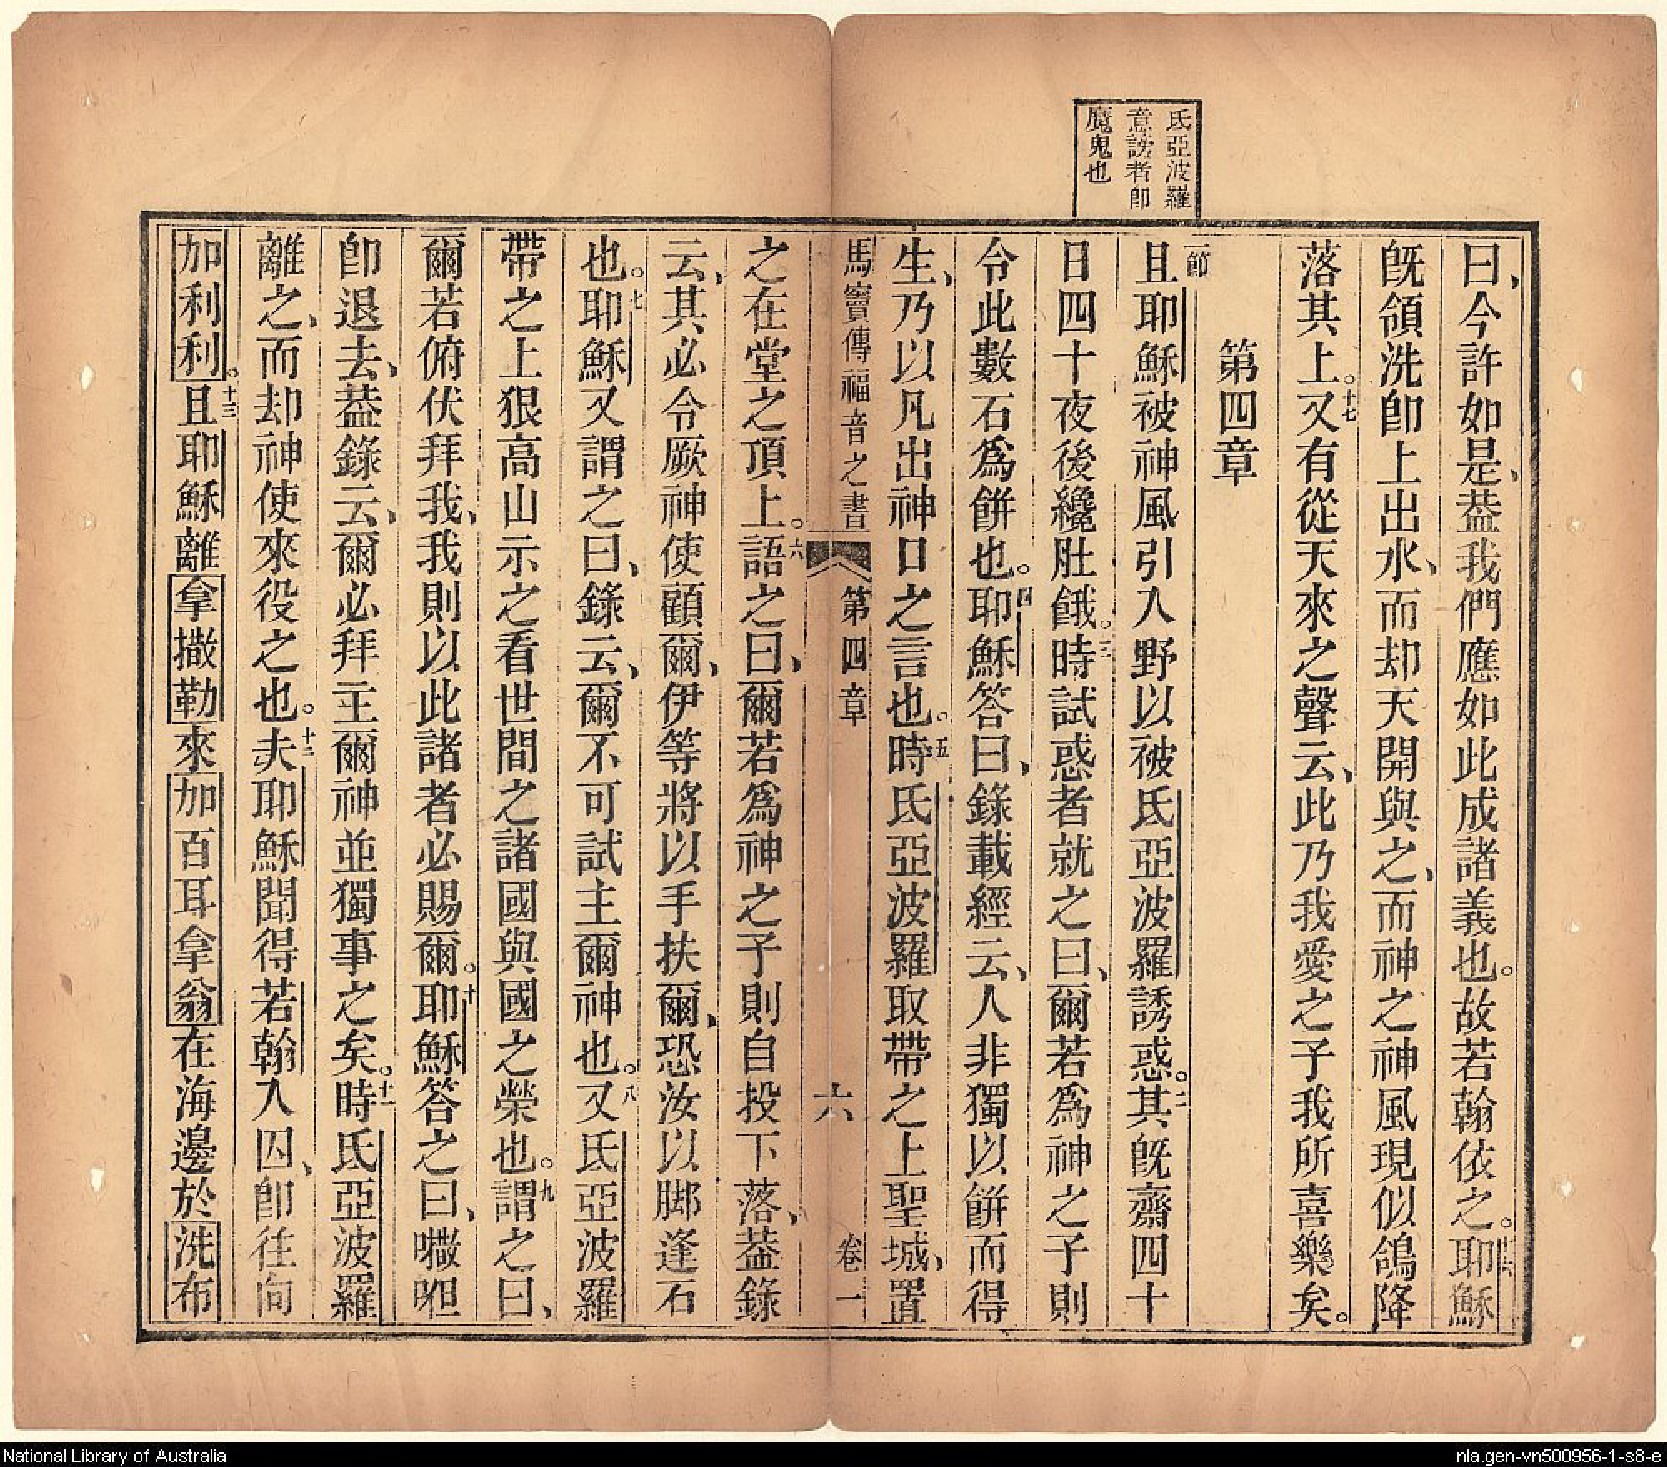 氏亞波羅
意謗者卽
魔鬼也
曰、今許如是、蓋我們應如此成諸義也。故若翰依之。十六耶穌
旣領洗卽上出水、而却天開與之、而神之神風現似鴿降
落其上。十七又有從天來之聲云、此乃我愛之子我所喜樂矣。
第四章
一節
且耶穌被神風引入野以被氏亞波羅誘惑。二其旣齋四十
日四十夜後纔肚餓。三時試惑者就之曰、爾若爲神之子則
令此數石爲餅也。四耶穌答曰、錄載經云、人非獨以餅而得
生、乃以凡出神口之言也。五時氏亞波羅取帶之上聖城、置
馬竇傳福音之書 第四章 六 卷一
之在堂之頂上。六語之曰、爾若爲神之子則自投下落、蓋錄
云、其必令厥神使顧爾、伊等將以手扶爾、恐汝以脚逢石
也。七耶穌又謂之曰、錄云、爾不可試主爾神也。八又氐亞波羅
帶之上狠高山示之看世間之諸國與國之榮也。九謂之曰、
爾若俯伏拜我、我則以此諸者必賜爾。十耶穌答之曰、㘔呾
卽退去、蓋錄云、爾必拜主爾神並獨事之矣。十一時氐亞波羅
離之、而却神使來役之也。十二夫耶穌聞得若翰入囚、卽往向
加利利。十三且耶穌離拿撒勒來加百耳拿翁在海邊於洗布